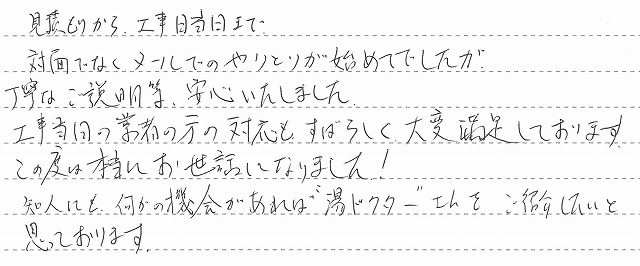 見積もりから、工事当日まで
対面でなくメールでのやりとりが始めてでしたが
丁寧なご説明等、安心いたしました。
工事当日の業者の方の対応もすばらしく大変満足しております。
この度は本当にお世話になりました！
知人にも何かの機会があれば"湯ドクター"さんをご紹介したいと
思っております。